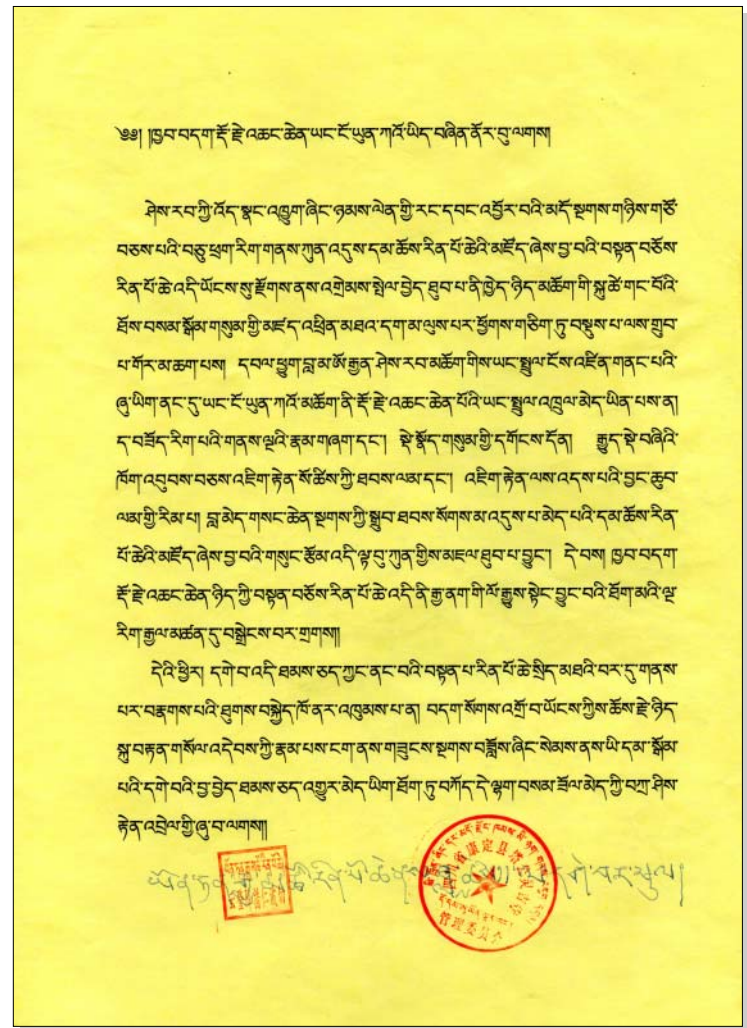 ༄༅། །ཁྱབ་བདག་རྡོ་རྗེ་འཆང་ཆེན་ཡང་ངོ་ཡུན་ཀའོ་ཡིད་བཞིན་ནོར་བུ་ལགས།
ཤེས་རབ་ཀྱི་འོད་སྣང་འཁྱུག་ཞིང་ཉམས་ལེན་གྱི་རང་དབང་འབྱོར་བའི་མདོ་སྔགས་གཉིས་གཙོ་
བཅས་པའི་བཅུ་ཕྲག་རིག་གནས་ཀུན་འདུས་དམ་ཆོས་རིན་པོ་ཆེའི་མཛོད་ཞེས་བྱ་བའི་བསྟན་བཅོས་
རིན་པོ་ཆེ་འདི་ཡོངས་སུ་རྫོགས་ནས་འགྲེམས་སྤེལ་བྱེད་ཐུབ་པ་ནི་ཁྱེད་ཉིད་མཆོག་གི་སྐུ་ཚེ་གང་བོའི་
ཐོས་བསམ་སྒོམ་གསུམ་གྱི་མཛད་འཕྲིན་མཐའ་དག་མ་ལུས་པར་ཕྱོགས་གཅིག་ཏུ་བསྡུས་པ་ལས་གྲུབ་
པ་གོར་མ་ཆག་པས། དཔལ་ཕྱུག་བླ་མ་ཨོ་རྒྱན་ཤེས་རབ་མཆོག་གིས་ཡང་སྤྲུལ་ངོས་འཛིན་གནང་པའི་
ཞུ་ཡིག་ནང་དུ་ཡང་ངོ་ཡུན་ཀའོ་མཆོག་ནི་རྡོ་རྗེ་འཆང་ཆེན་པོའི་ཡང་སྤྲུལ་འཁྲུལ་མེད་ཡིན་པས་ན།
ད་བཟོད་རིག་པའི་གནས་ལྔའི་རྣམ་གཞག་དང་། སྡེ་སྣོད་གསུམ་གྱི་དགོངས་དོན། རྒྱུད་སྡེ་བཞིའི་
ཁོག་འབུབས་བཅས་འཇིག་རྟེན་སོ་ཚིས་ཀྱི་ཐབས་ལམ་དང་། འཇིག་རྟེན་ལས་འདས་པའི་བྱང་ཆུབ་
ལམ་གྱི་རིམ་པ། བླ་མེད་གསང་ཆེན་སྔགས་ཀྱི་སྒྲུབ་ཐབས་སོགས་མ་འདུས་པ་མེད་པའི་དམ་ཆོས་རིན་
པོ་ཆེའི་མཛོད་ཞེས་བྱ་བའི་གསུང་རྩོམ་འདི་ལྟ་བུ་ཀུན་གྱིས་མཇལ་ཐུབ་པ་བྱུང་། དེ་བས། ཁྱབ་བདག་
རྡོ་རྗེ་འཆང་ཆེན་ཉིད་ཀྱི་བསྟན་བཅོས་རིན་པོ་ཆེ་འདི་ནི་རྒྱ་ནག་གི་ལོ་རྒྱུས་སྟེང་བྱུང་བའི་ཐོག་མའི་ལྔ་
རིག་རྒྱལ་མཚན་དུ་བསྒྲེངས་བར་གྲགས།།
དེའི་ཕྱིར། དགེ་བ་འདི་ཐམས་ཅད་ཀྱང་ནང་བའི་བསྟན་པ་རིན་པོ་ཆེ་སྲིད་མཐའི་བར་དུ་གནས་
པར་བརྣགས་པའི་ཐུགས་བསྐྱེད་ཁོ་ནར་འཁུམས་པ་ན། བདག་སོགས་འགྲོ་བ་ཡོངས་ཀྱིས་ཆོས་རྗེ་ཉིད་
སྐུ་བརྟན་གསོལ་འདེབས་ཀྱི་རྣམ་པས་ངག་ནས་གཟུངས་སྔགས་བཟློས་ཞིང་སེམས་ནས་ཡི་དམ་སྒོམ་
པའི་དགེ་བའི་བྱ་བྱེད་ཐམས་ཅད་འགྱུར་མེད་ཡིག་ཐོག་ཏུ་བཀོད་དེ་ལྷག་བསམ་ཟོལ་མེད་ཀྱི་བཀྲ་ཤིས་
རྟེན་འབྲེལ་གྱི་ཞུ་བ་ལགས།།
管理委员会